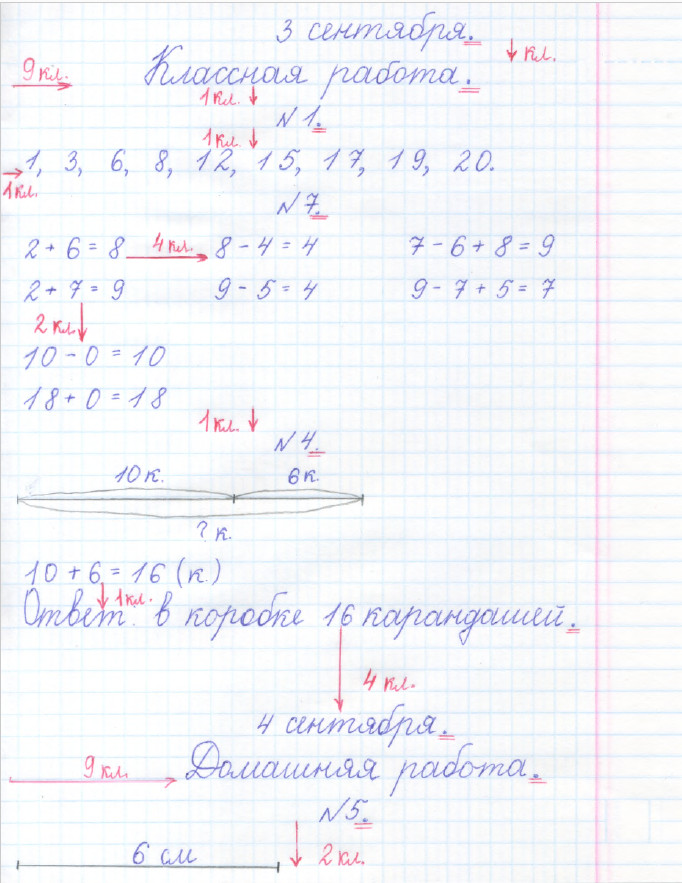 3 сентября.
кл.
9 кл. Классная работа.
1 кл.
№ 1.
1 кл.
1, 3, 6, 8, 12, 15, 17, 19, 20.
1 кл.
№ 7.
2 + 6 = 8 4 кл. 8 - 4 = 4 7 - 6 + 8 = 9
2 + 7 = 9 9 - 5 = 4 9 - 7 + 5 = 7
2 кл.
10 - 0 = 10
18 + 0 = 18
1 кл.
№ 4.
10 к. 6 к.
? к.
10 + 6 = 16 (к.)
1 кл.
Ответ: в коробке 16 карандашей.
4 кл.
4 сентября.
9 кл. Домашняя работа.
№ 5.
6 см 2 кл.